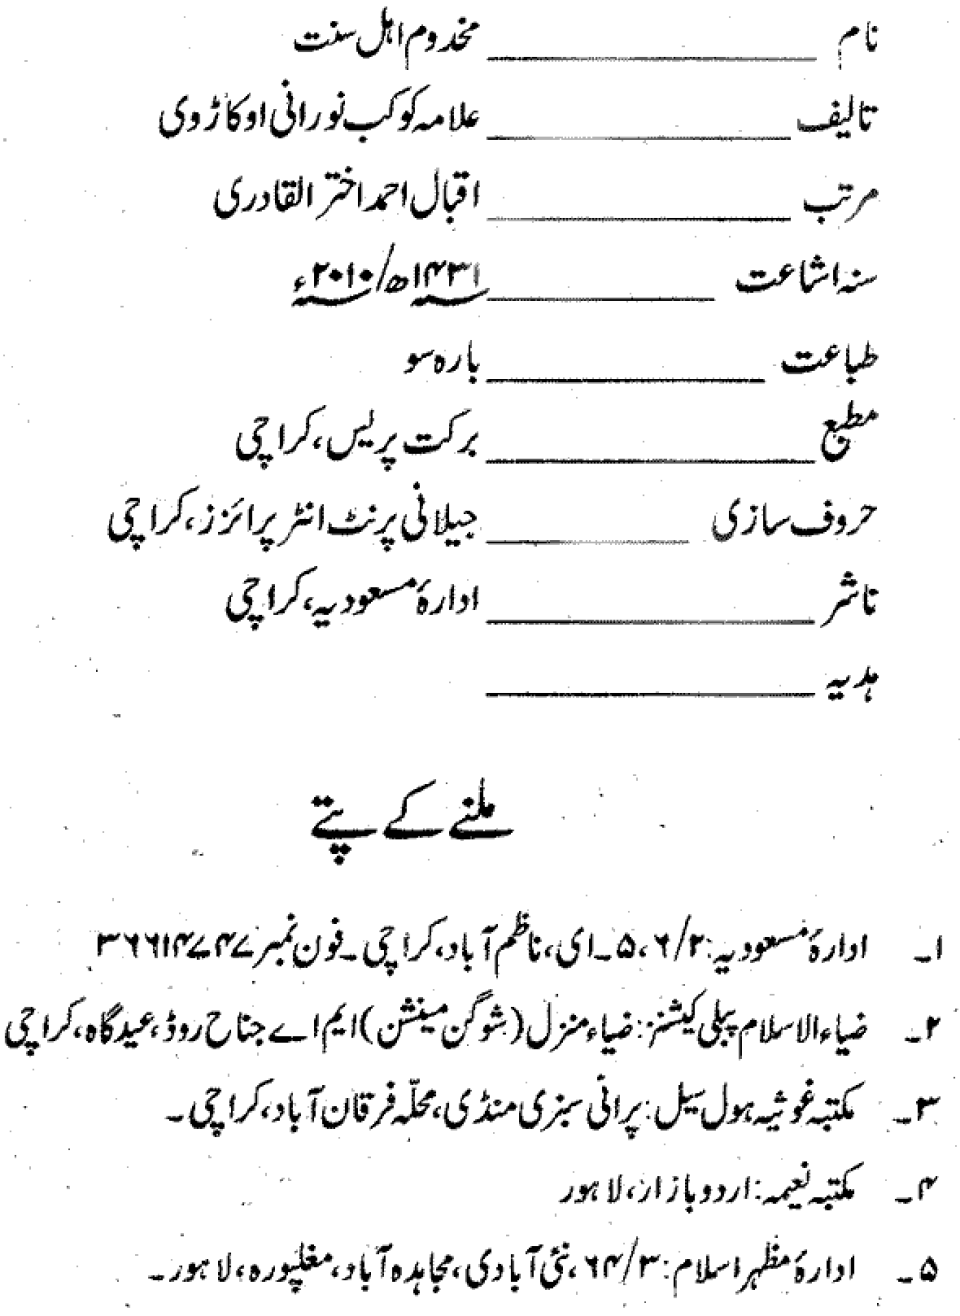 نام ____________ مخدوم اہل سنت
تالیف ____________ علامہ کوکب نورانی اوکاڑوی
مرتب ____________ اقبال احمد اختر القادری
سنہ اشاعت ____________ ۱۴۳۱ھ/۲۰۱۰ء
طباعت ____________ بارہ سو
مطبع ____________ برکت پریس، کراچی
حروف سازی ____________ جیلانی پرنٹ انٹر پرائزز، کراچی
ناشر ____________ ادارۂ مسعودیہ، کراچی
ہدیہ ____________
ملنے کے پتے
۱۔ ادارۂ مسعودیہ: ۶/۲، ۵۔ای، ناظم آباد، کراچی۔ فون نمبر ۳۶۶۱۴۷۴۷
۲۔ ضیاء الاسلام پبلی کیشنز: ضیاء منزل (شوگن مینشن) ایم اے جناح روڈ، عیدگاہ، کراچی
۳۔ مکتبہ غوثیہ ہول سیل: پرانی سبزی منڈی، محلّہ فرقان آباد، کراچی۔
۴۔ مکتبہ نعیمہ: اردو بازار، لاہور
۵۔ ادارۂ مظہر اسلام: ۶۴/۳، نئی آبادی، مجاہدہ آباد، مغلپورہ، لاہور۔